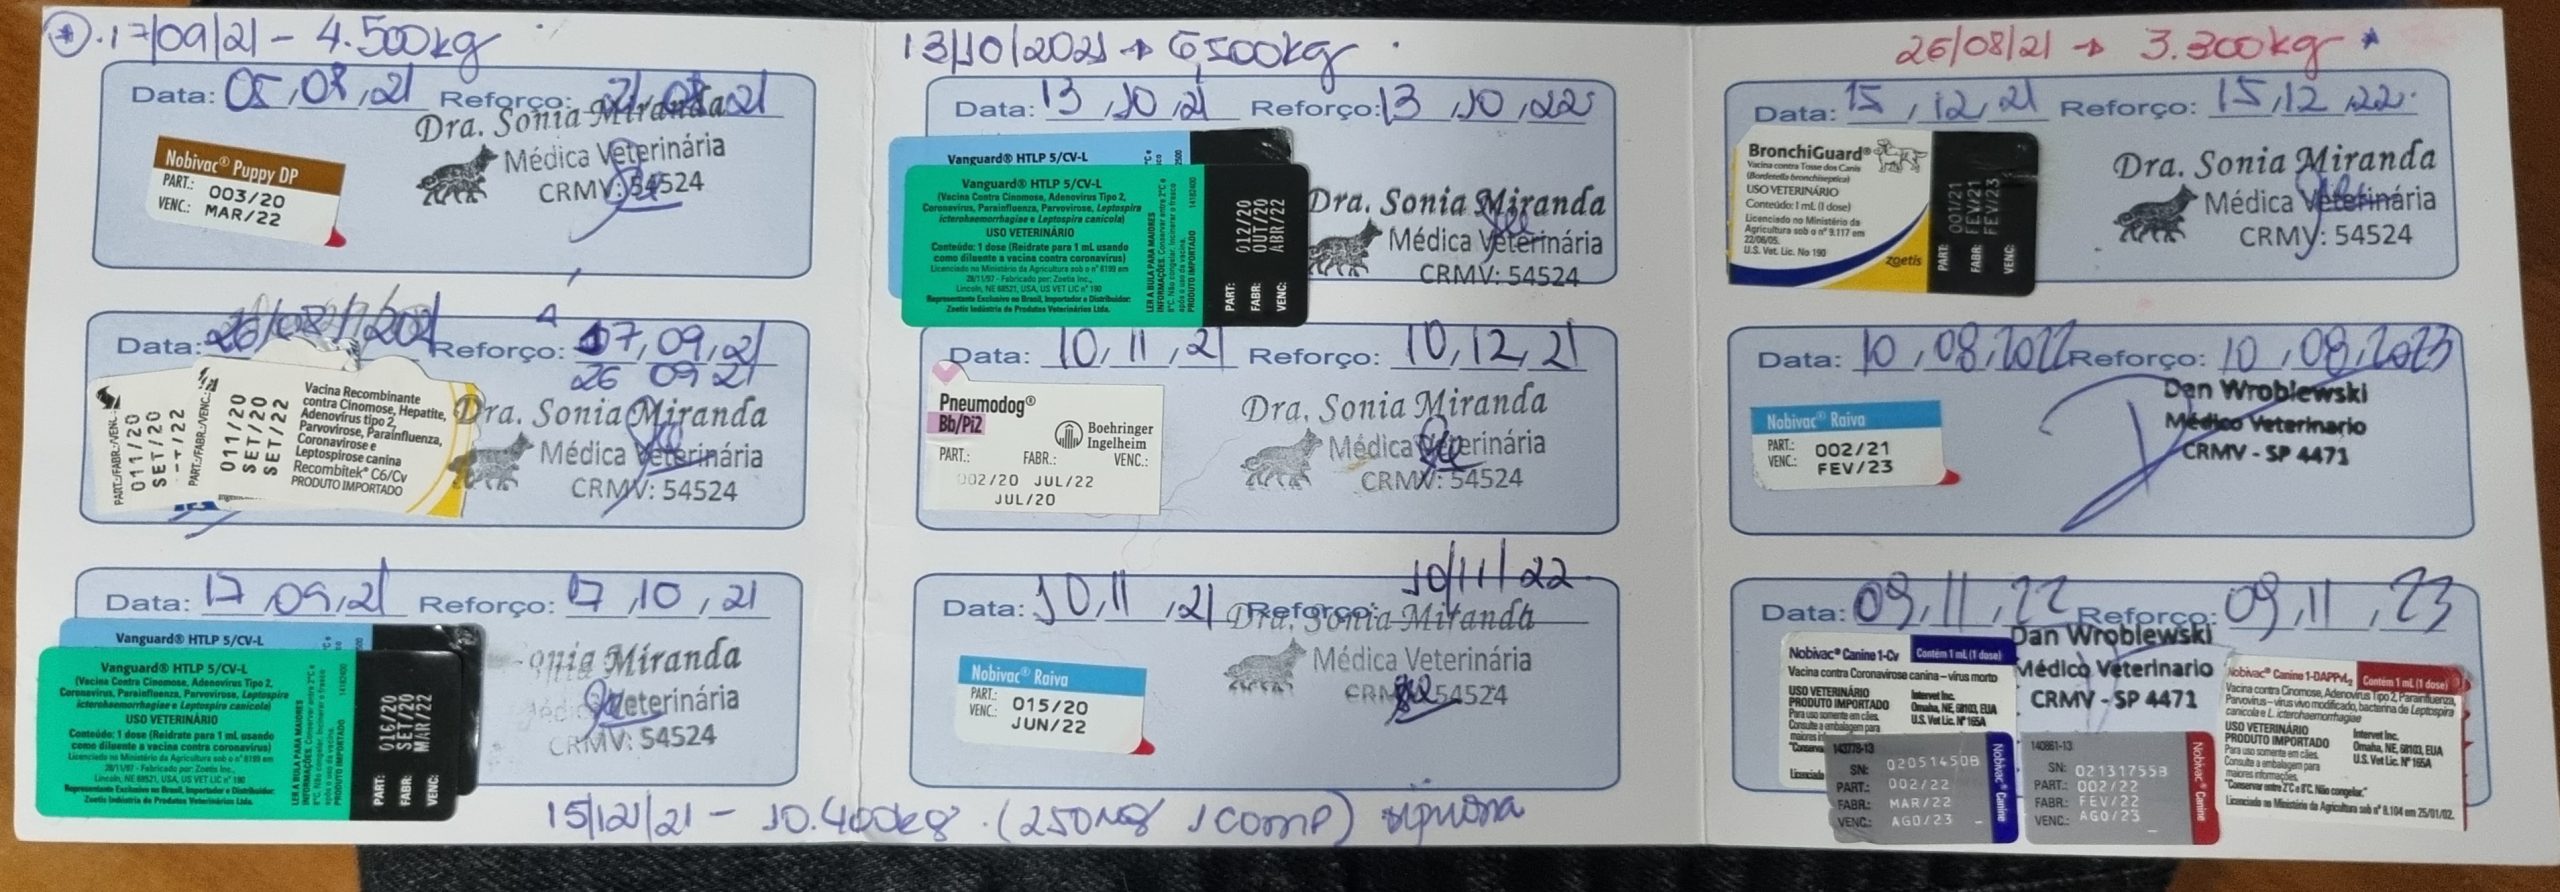 17/09/21 - 4.500kg
Data: 05,08,21 Reforço:
Dra. Sonia Miranda
Médica Veterinária
CRMV: 54524
Nobivac® Puppy DP
PART.: 003/20
VENC.: MAR/22
Data: 26/08/ Reforço: 17,09,21
26 09 21
PART./FABR./VENC.:
011/20
SET/20
PART./FABR./VENC.:
011/20
SET/20
SET/22
Vacina Recombinante
contra Cinomose, Hepatite,
Adenovírus tipo 2,
Parvovirose, Parainfluenza,
Coronavirose e
Leptospirose canina
Recombitek® C6/Cv
PRODUTO IMPORTADO
Dra. Sonia Miranda
Médica Veterinária
CRMV: 54524
Data: 17,09,21 Reforço: 17,10,21
Vanguard® HTLP 5/CV-L
Vanguard® HTLP 5/CV-L
(Vacina Contra Cinomose, Adenovirus Tipo 2,
Coronavirus, Parainfluenza, Parvovirose, Leptospira
icterohaemorrhagiae e Leptospira canicola)
USO VETERINÁRIO
Conteúdo: 1 dose (Reidrate para 1 mL usando
como diluente a vacina contra coronavírus)
Licenciado no Ministério da Agricultura sob o nº 6199 em
28/11/97 - Fabricado por: Zoetis Inc.,
Lincoln, NE 68521, USA, US VET LIC nº 190
Representante Exclusivo no Brasil, Importador e Distribuidor:
Zoetis Indústria de Produtos Veterinários Ltda.
LER A BULA PARA MAIORES
INFORMAÇÕES. Conservar entre 2°C e
8°C. Não congelar. Incinerar o frasco
após o uso da vacina.
PRODUTO IMPORTADO 14182400
PART: 016/20
FABR: SET/20
VENC: MAR/22
onia Miranda
Veterinária
CRMV: 54524
13/10/2021 → 6,500kg
Data: 13,10,21 Reforço: 13,10,22
Vanguard® HTLP 5/CV-L
Vanguard® HTLP 5/CV-L
(Vacina Contra Cinomose, Adenovirus Tipo 2,
Coronavirus, Parainfluenza, Parvovirose, Leptospira
icterohaemorrhagiae e Leptospira canicola)
USO VETERINÁRIO
Conteúdo: 1 dose (Reidrate para 1 mL usando
como diluente a vacina contra coronavírus)
Licenciado no Ministério da Agricultura sob o nº 6199 em
28/11/97 - Fabricado por: Zoetis Inc.,
Lincoln, NE 68521, USA, US VET LIC nº 190
Representante Exclusivo no Brasil, Importador e Distribuidor:
Zoetis Indústria de Produtos Veterinários Ltda.
LER A BULA PARA MAIORES
INFORMAÇÕES. Conservar entre 2°C e
8°C. Não congelar. Incinerar o frasco
após o uso da vacina.
PRODUTO IMPORTADO 14182400
PART: 012/20
FABR: OUT/20
VENC: ABR/22
Dra. Sonia Miranda
Médica Veterinária
CRMV: 54524
Data: 10,11,21 Reforço: 10,12,21
Pneumodog®
Bb/Pi2
Boehringer
Ingelheim
PART.: FABR.: VENC.:
002/20 JUL/22
JUL/20
Dra. Sonia Miranda
Médica Veterinária
CRMV: 54524
10/11/22
Data: 10,11,21 Reforço:
Dra. Sonia Miranda
Médica Veterinária
CRMV: 54524
Nobivac® Raiva
PART.: 015/20
VENC.: JUN/22
15/12/21 - 10.400kg (250mg 1 comp)
26/08/21 → 3.300kg *
Data: 15,12,21 Reforço: 15,12,22
BronchiGuard®
Vacina contra Tosse dos Canis
(Bordetella bronchiseptica)
USO VETERINÁRIO
Conteúdo: 1 mL (1 dose)
Licenciado no Ministério da
Agricultura sob o nº 9.117 em
22/06/05.
U.S. Vet. Lic. No 190
zoetis
PART: 001/21
FABR: FEV/21
VENC: FEV/23
Dra. Sonia Miranda
Médica Veterinária
CRMV: 54524
Data: 10,08,2022 Reforço: 10,08,2023
Nobivac® Raiva
PART.: 002/21
VENC.: FEV/23
Dan Wroblewski
Médico Veterinario
CRMV - SP 4471
Data: 09,11,22 Reforço: 09,11,23
Dan Wroblewski
Médico Veterinario
CRMV - SP 4471
Nobivac® Canine 1-Cv Contém 1 mL (1 dose)
Vacina contra Coronavirose canina - vírus morto
USO VETERINÁRIO
PRODUTO IMPORTADO
Para uso somente em cães.
Consulte a embalagem para
Intervet Inc.
Omaha, NE, 68103, EUA
U.S. Vet Lic. Nº 165A
143778-13
SN: 02051450B
PART.: 002/22
FABR.: MAR/22
VENC.: AGO/23
Nobivac® Canine
140861-13
SN: 02131755B
PART.: 002/22
FABR.: FEV/22
VENC.: AGO/23
Nobivac® Canine
Nobivac® Canine 1-DAPPvL2 Contém 1 mL (1 dose)
Vacina contra Cinomose, Adenovírus Tipo 2, Parainfluenza,
Parvovírus - vírus vivo modificado, bacterina de Leptospira
canicola e L. icterohaemorrhagiae
USO VETERINÁRIO
PRODUTO IMPORTADO
Para uso somente em cães.
Consulte a embalagem para
maiores informações.
"Conservar entre 2°C e 8°C. Não congelar."
Licenciado no Ministério da Agricultura sob nº 8.104 em 25/01/02.
Intervet Inc.
Omaha, NE, 68103, EUA
U.S. Vet Lic. Nº 165A